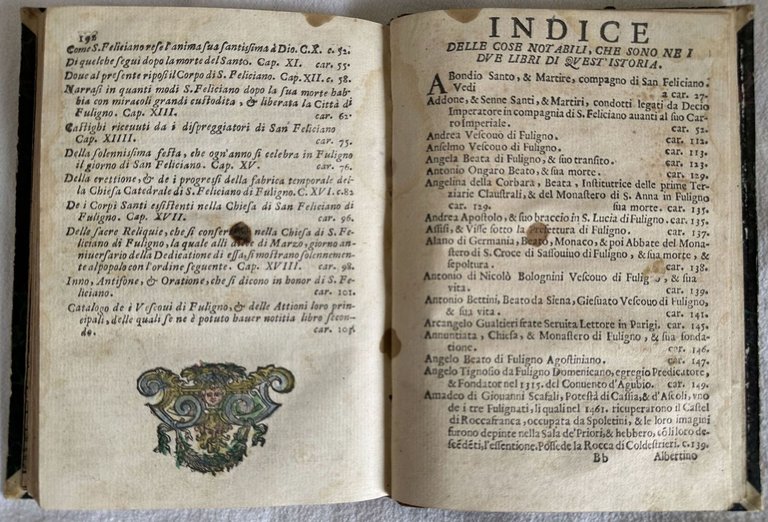 192
Come S. Feliciano rese l'anima sua santissima à Dio. C.X. c. 52.
Di quel che seguì dopo la morte del Santo. Cap. XI. car. 55.
Doue al presente riposi il Corpo di S. Feliciano. Cap. XII. c. 58.
Narrasi in quanti modi S. Feliciano dopo la sua morte habbia
con miracoli grandi custodita, & liberata la Città di
Fuligno. Cap. XIII. car. 62.
Castighi riceuuti da i dispreggiatori di San Feliciano
Cap. XIIII. car. 75.
Della solennissima festa, che ogn'anno si celebra in Fuligno
il giorno di San Feliciano. Cap. XV. car. 76.
Della erettione, & de i progressi della fabrica temporale della
Chiesa Catedrale di S. Feliciano di Fuligno. C. XVI. c. 82
De i Corpi Santi esistenti nella Chiesa di San Feliciano di
Fuligno. Cap. XVII. car. 96.
Delle sacre Reliquie, che si nella Chiesa di S. Feliciano
di Fuligno, la quale alli di Marzo, giorno anniuersario
della Dedicatione di essa, si mostrano solennemente
al popolo con l'ordine seguente. Cap. XVIII. car. 98.
Inno, Antifone, & Oratione, che si dicono in honor di S. Feliciano.
car. 101.
Catalogo de i Vescoui di Fuligno, & delle Attioni loro principali,
delle quali se ne è potuto hauer notitia libro secondo.
car. 105.
INDICE
DELLE COSE NOTABILI, CHE SONO NE I
DVE LIBRI DI QVEST'ISTORIA.
ABondio Santo, & Martire, compagno di San Feliciano.
Vedi a car. 27.
Addone, & Senne Santi, & Martiri, condotti legati da Decio
Imperatore in compagnia di S. Feliciano auanti al suo Carro
Imperiale. car. 52.
Andrea Vescouo di Fuligno. car. 112.
Anselmo Vescouo di Fuligno. car. 113.
Angela Beata di Fuligno, & suo transito. car. 123.
Antonio Ongaro Beato, & sua morte. car. 129.
Angelina della Corbara, Beata, Institutrice delle prime Terziarie
Claustrali, & del Monastero di S. Anna in Fuligno
car. 129. sua morte. car. 135.
Andrea Apostolo, & suo braccio in S. Lucia di Fuligno. car. 135.
Assisi, & Visse sotto la Prefettura di Fuligno. car. 137.
Alano di Germania, Beato, Monaco, & poi Abbate del Monastero
di S. Croce di Sassouiuo di Fuligno, & sua morte, &
sepoltura. car. 138.
Antonio di Nicolò Bolognini Vescouo di Fuligno, & sua
vita. car. 139.
Antonio Bettini, Beato da Siena, Giesuato Vescouo di Fuligno,
& sua vita. car. 141.
Arcangelo Gualtieri frate Seruita Lettore in Parigi. car. 145.
Annuntiata, Chiesa, & Monastero di Fuligno, & sua fondatione.
car. 146.
Angelo Beato di Fuligno Agostiniano. car. 147.
Angelo Tignosio da Fuligno Domenicano, egregio Predicatore,
& Fondator nel 1315. del Conuento d'Agubio. car. 149.
Amadeo di Giouanni Scafali, Potestà di Cassia, & d'Ascoli, vno
de i tre Fulignati, li quali nel 1461. ricuperorno il Castel
di Roccafranca, occupata da Spoletini, & le loro imagini
furono depinte nella Sala de' Priori, & hebbero, cō li loro descēdēti,
l'essentione. Possede la Rocca di Coldestrieri. c. 139.
Bb Albertino